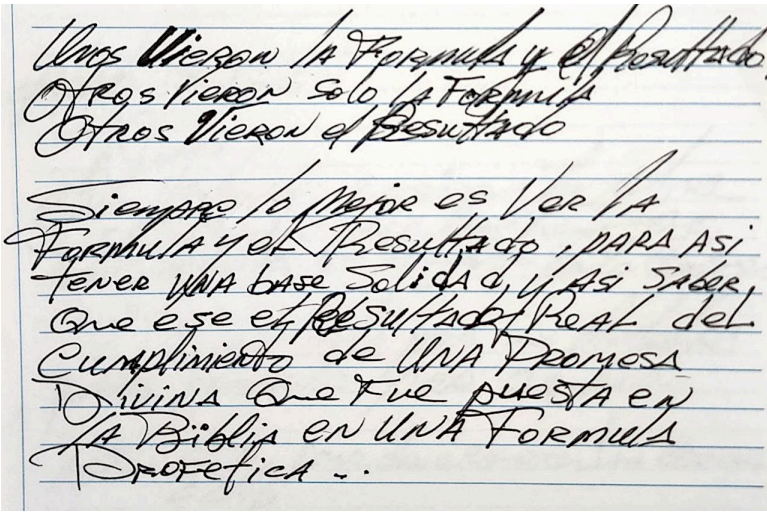 Unos Vieron la Formula y el Resultado.
Otros Vieron Solo la Formula
Otros Vieron el Resultado
Siempre lo Mejor es Ver la
Formula y el Resultado, para Asi
Tener una base Solidad, y Asi Saber,
Que ese el Resultado Real del
Cumplimiento de una Promesa
Divina Que Fue puesta en
la Biblia en una Formula
Profetica...